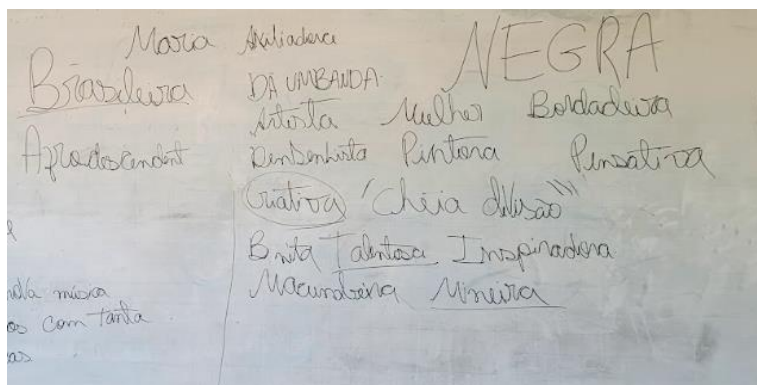 Maria Auxiliadora NEGRA
Brasileira DA UMBANDA
Artista Mulher Bordadeira
Afrodescendent Densenhista Pintora Pensativa
Criativa "Cheia
Bnita Talentosa Inspiradora
Macumbeira Mineira
música
com tanta
as